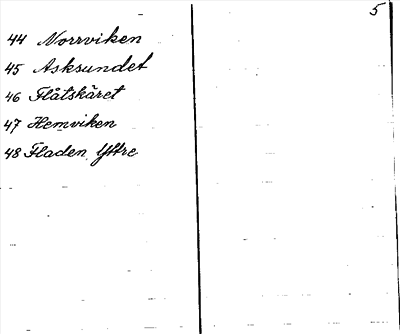 5
44 Norrviken
45 Asksundet
46 Flåtskäret
47 Hemviken
48 Fladen Yttre